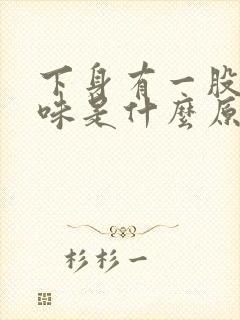 下身有一股
味是什麼原
杉杉一